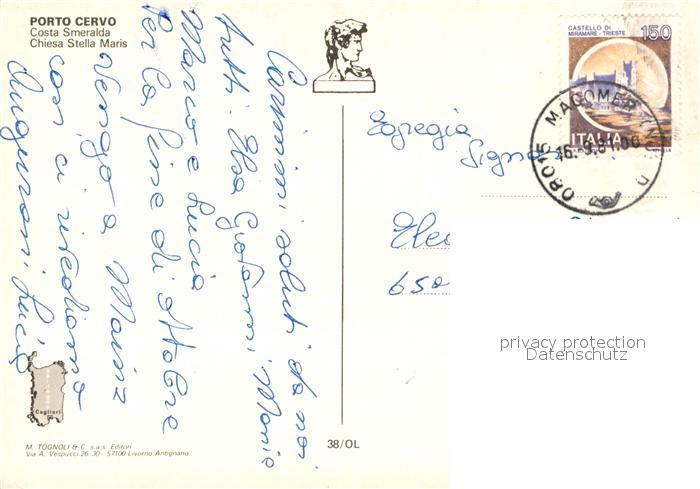 PORTO CERVO
Costa Smeralda
Chiesa Stella Maris
Carissimi saluti da noi
tutti. Elsa Giovanni Maria
Marco e Lucia
Per la fine di Ottobre
vengo a Mainz
così ci vediamo
Auguroni Lucia
Cagliari
M. TOGNOLI & C. s.a.s. Editori
Via A. Vespucci 26 30 - 57100 Livorno Antignano
38/OL
CASTELLO DI
MIRAMARE - TRIESTE
150
ITALIA
08015 MACOMER
16.9.81.00
Egregia
Signora
650
privacy protection
Datenschutz